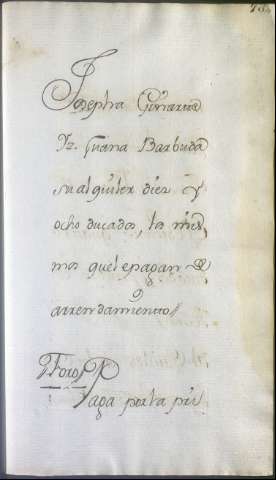 Josepha Ginarte
Yz. Juana Barbuda
su alquiler diez y
ocho ducados, los mis
mos que le pagan de
arrendamiento
Foros
Paga por la pri